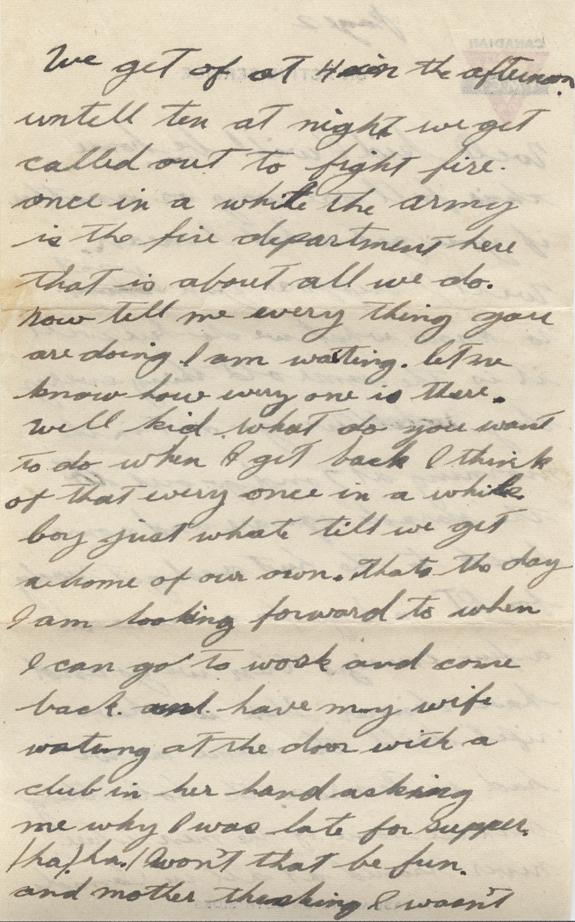 We get of at 4 in the afternoon
untell ten at night we get
called out to fight fire.
once in a while the army
is the fire department here
that is about all we do.
now tell me every thing you
are doing I am wating. let me
know how every one is there.
well kid what do you want
to do when I get back I think
of that every once in a while
boy just whate till we get
a home of our own. thats the day
I am looking forward to when
I can go to work and come
back and have my wife
wateing at the door with a
club in her hand asking
me why I was late for supper.
(ha) ha. (Won't that be fun.
and mother thinking I wasn't